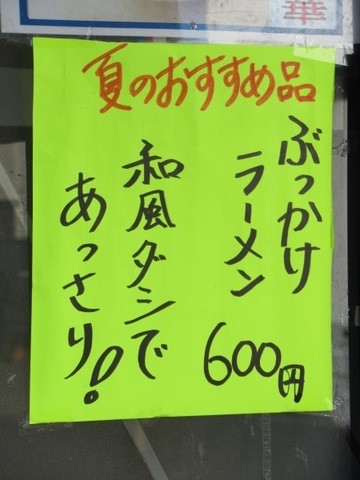 華
夏のおすすめ品
ぶっかけ
ラーメン
600円
和風ダシで
あっさり!